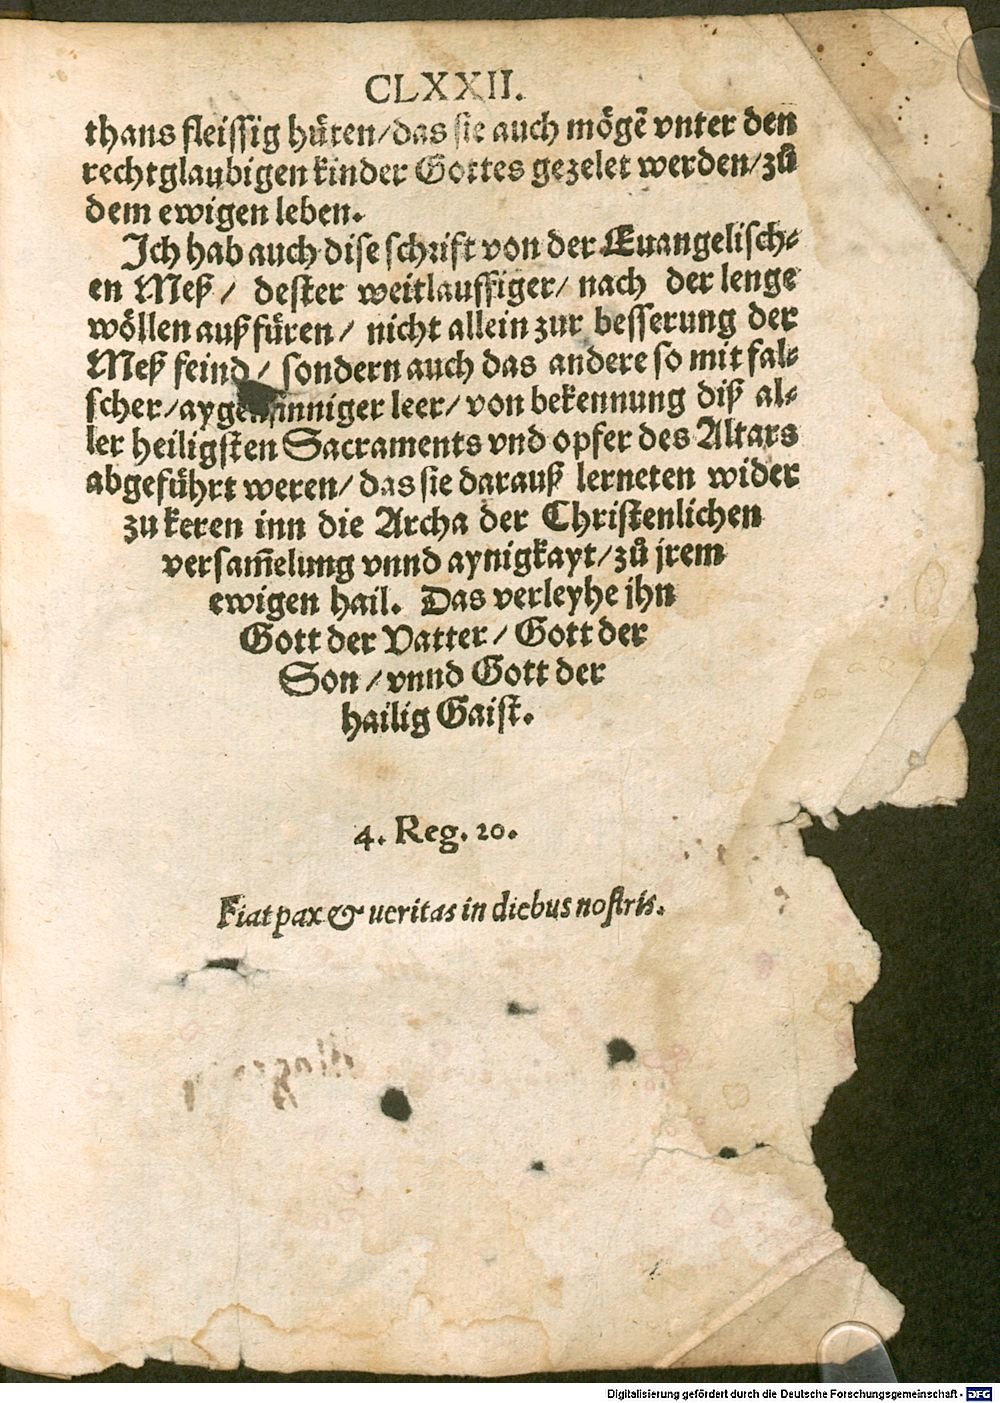 CLXXII.
thans fleissig hüten/das sie auch mögē vnter den
rechtglaubigen kinder Gottes gezelet werden/zů
dem ewigen leben.
Ich hab auch dise schrift von der Euangelisch⸗
en Meß/ dester weitlauffiger/ nach der lenge
wöllen außfüren/ nicht allein zur besserung der
Meß feind/ sondern auch das andere so mit fal⸗
scher/aygensinniger leer/von bekennung diß al⸗
ler heiligsten Sacraments vnd opfer des Altars
abgeführt weren/das sie darauß lerneten wider
zu keren inn die Archa der Christenlichen
versam̄elung vnnd aynigkayt/zů jrem
ewigen hail. Das verleyhe ihn
Gott der Vatter/ Gott der
Son/vnnd Gott der
hailig Gaist.
4. Reg. 20.
Fiat pax & ueritas in diebus nostris.
Digitalisierung gefördert durch die Deutsche Forschungsgemeinschaft - DFG